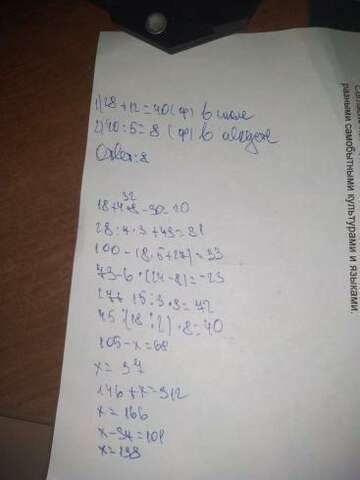 1) 28+12=40(ф) в июле
2) 40:5=8 (ф) в
Ответ: 8
32
18+4·8-30=20
28:4·3+
100-(8·5+27)=33
73-6·(24-8)=-23
27+15:3·9=72
45:(18:2)·8=40
105-x=68
x=37
146+x=312
x=166
x-94=101
x=198
разными самобытными культурами и языками.